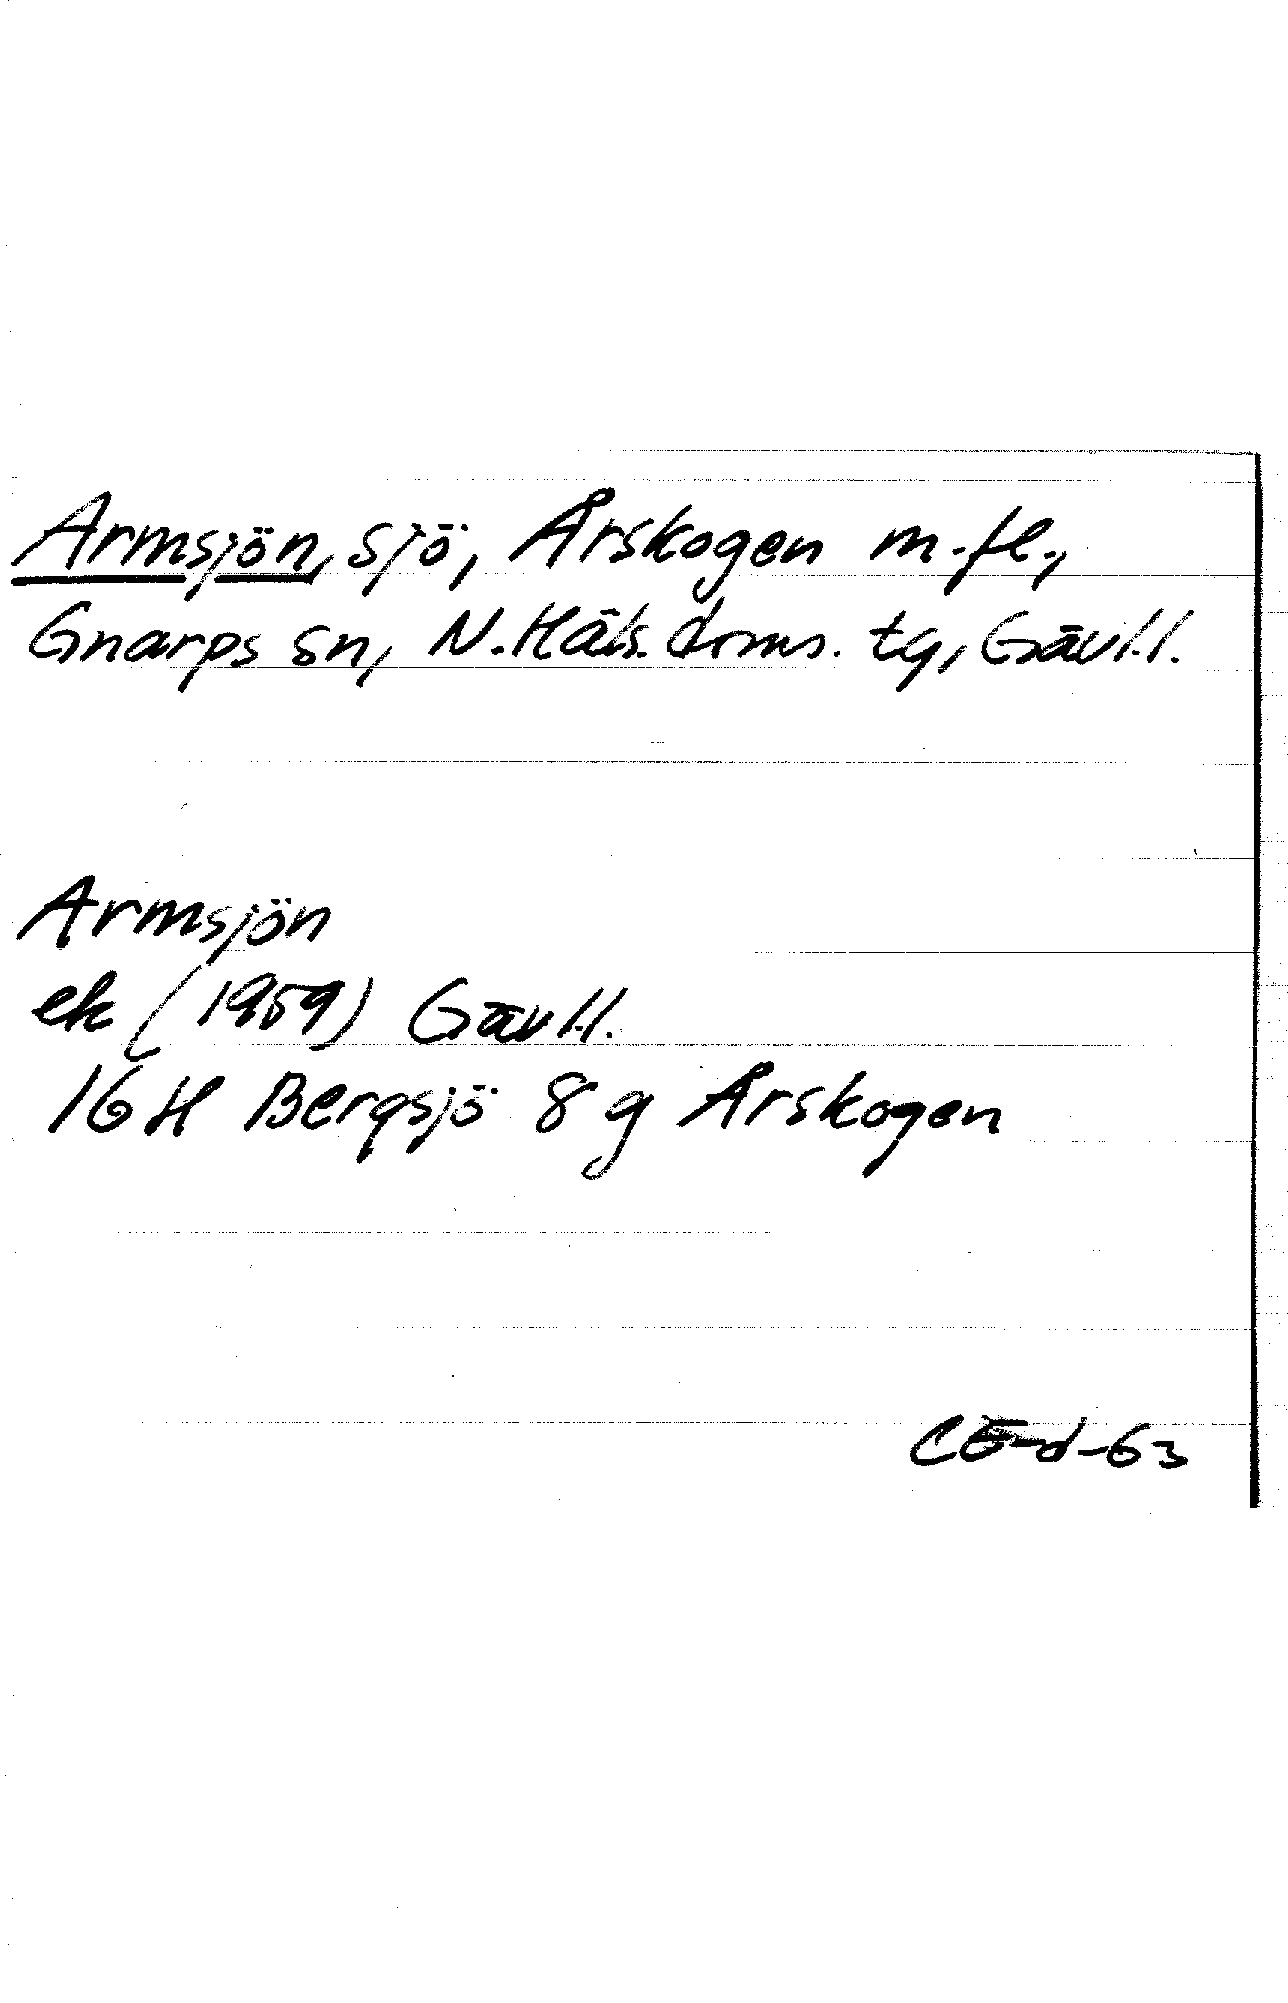 Armsjön, sjö, Årskogen m.fl.,
Gnarps sn, N.Häls. doms. tg, Gävl.l.
Armsjön
ek (1959) Gävl.l.
16H Bergsjö 8g Årskogen
CE-d-63